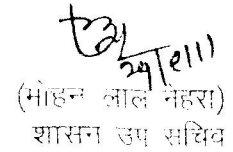 (मोहन लाल नेहरा)
शासन उप सचिव